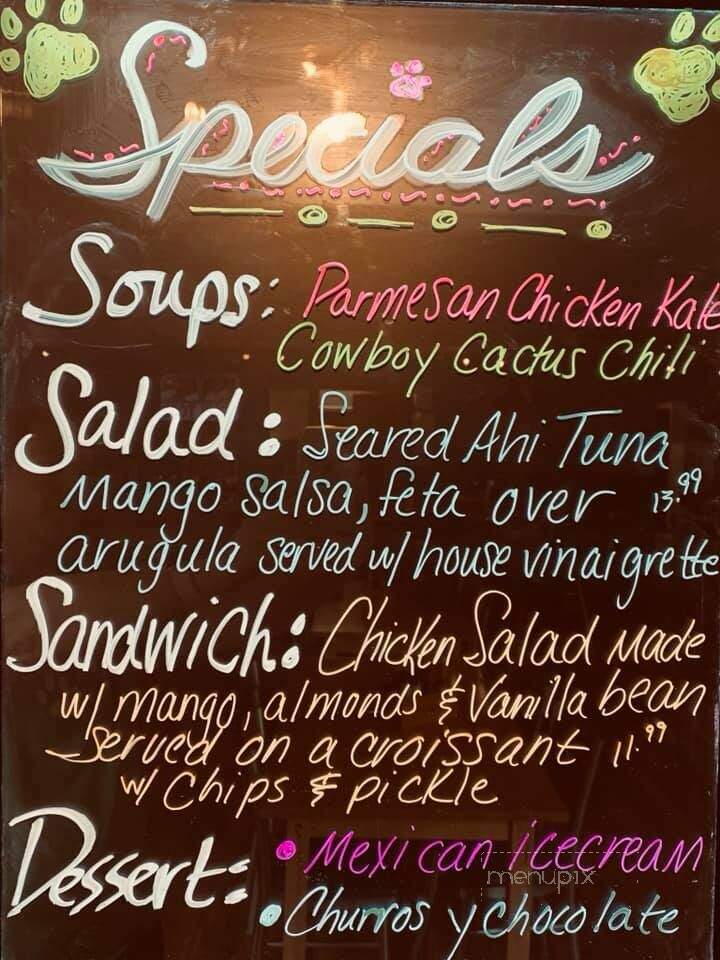 Specials
Soups: Parmesan Chicken Kale
Cowboy Cactus Chili
Salad: Seared Ahi Tuna
Mango Salsa, feta over 13.99
arugula served w/ house vinaigrette
Sandwich: Chicken Salad Made
w/ mango, almonds & Vanilla bean
served on a croissant 11.99
w/ Chips & pickle
Dessert: • Mexican icecream
menupix
• Churros y chocolate